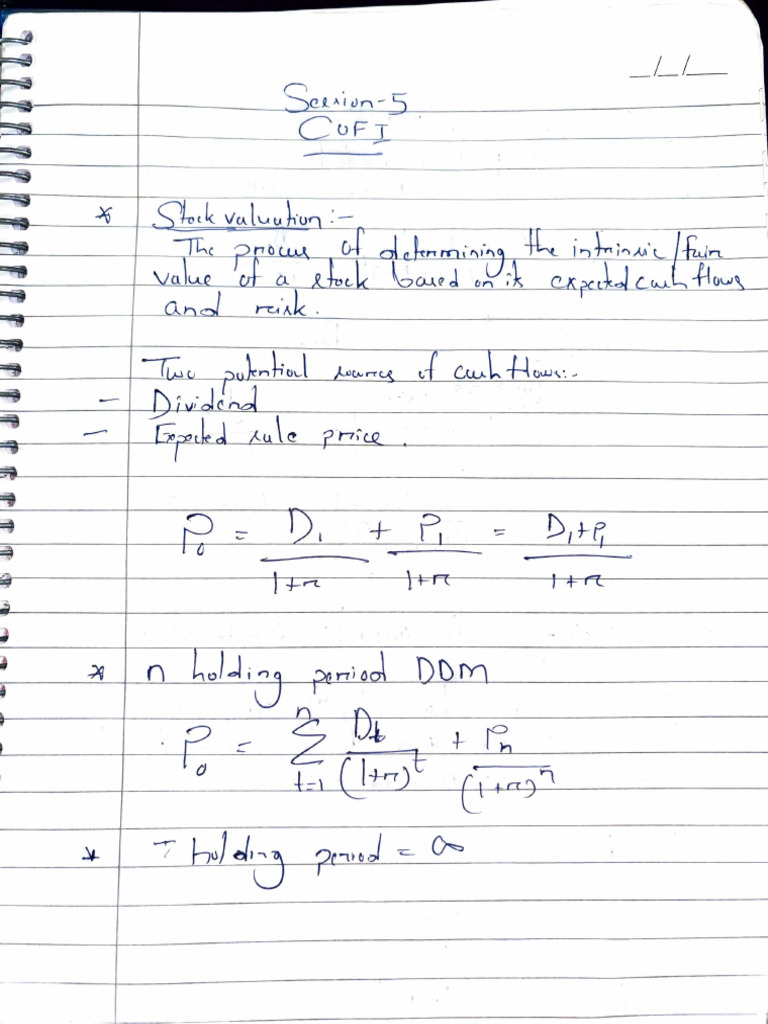 _/_/__
Session-5
COFI
* Stock valuation :-
The process of determining the intrinsic/fair
value of a stock based on its expected cash flows
and risk.
Two potential sources of cash flows:-
- Dividend
- Expected sale price.
P₀ = D₁/(1+r) + P₁/(1+r) = (D₁+P₁)/(1+r)
* n holding period DDM
P₀ = Σ_{t=1}^{n} D_t/(1+r)^t + P_n/(1+r)^n
* holding period = ∞